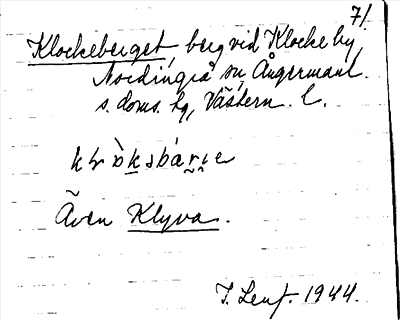 71.
Klockeberget, berg vid Klocke by,
Nordingrå sn, Ångermanl.
s. doms. hg, Västern. l.
Även Klyva.
1944.